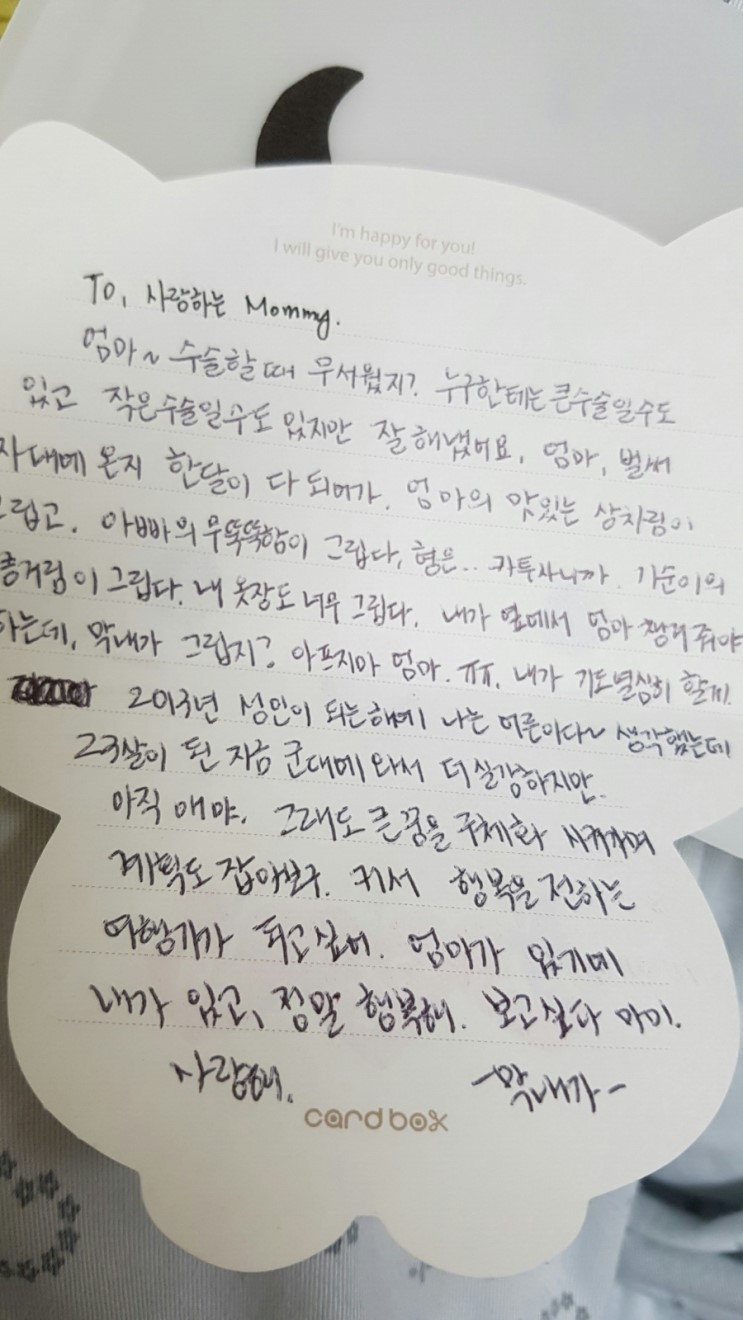 I'm happy for you!
I will give you only good things.
To, 사랑하는 Mommy.
엄마~ 수술할 때 무서웠지? 누구한테는 큰수술일수도
있고 작은수술일수도 있지만 잘 해냈어요, 엄마, 벌써
자대에 온지 한달이 다 되어가. 엄마의 맛있는 상차림이
그립고. 아빠의 무뚝뚝함이 그립다, 형은... 카투사니까. 가순이의
이 그립다. 내 옷장도 너무 그립다. 내가 옆에서 엄마 챙겨줘야
하는데, 막내가 그립지? 아프지마 엄마. ㅠㅠ. 내가 기도열심히 할게!
2013년 성인이 되는해에 나는 어른이다~ 생각했는데
23살이 된 지금 군대에 와서 더 실감하지만.
아직 애야. 그래도 큰꿈을 구체화 시켜가며
계획도 잡아보구. 커서 행복을 전하는
여행가가 되고싶어. 엄마가 있기에
내가 있고, 정말 행복해. 보고싶다 마미.
사랑해. -막내가-
card box